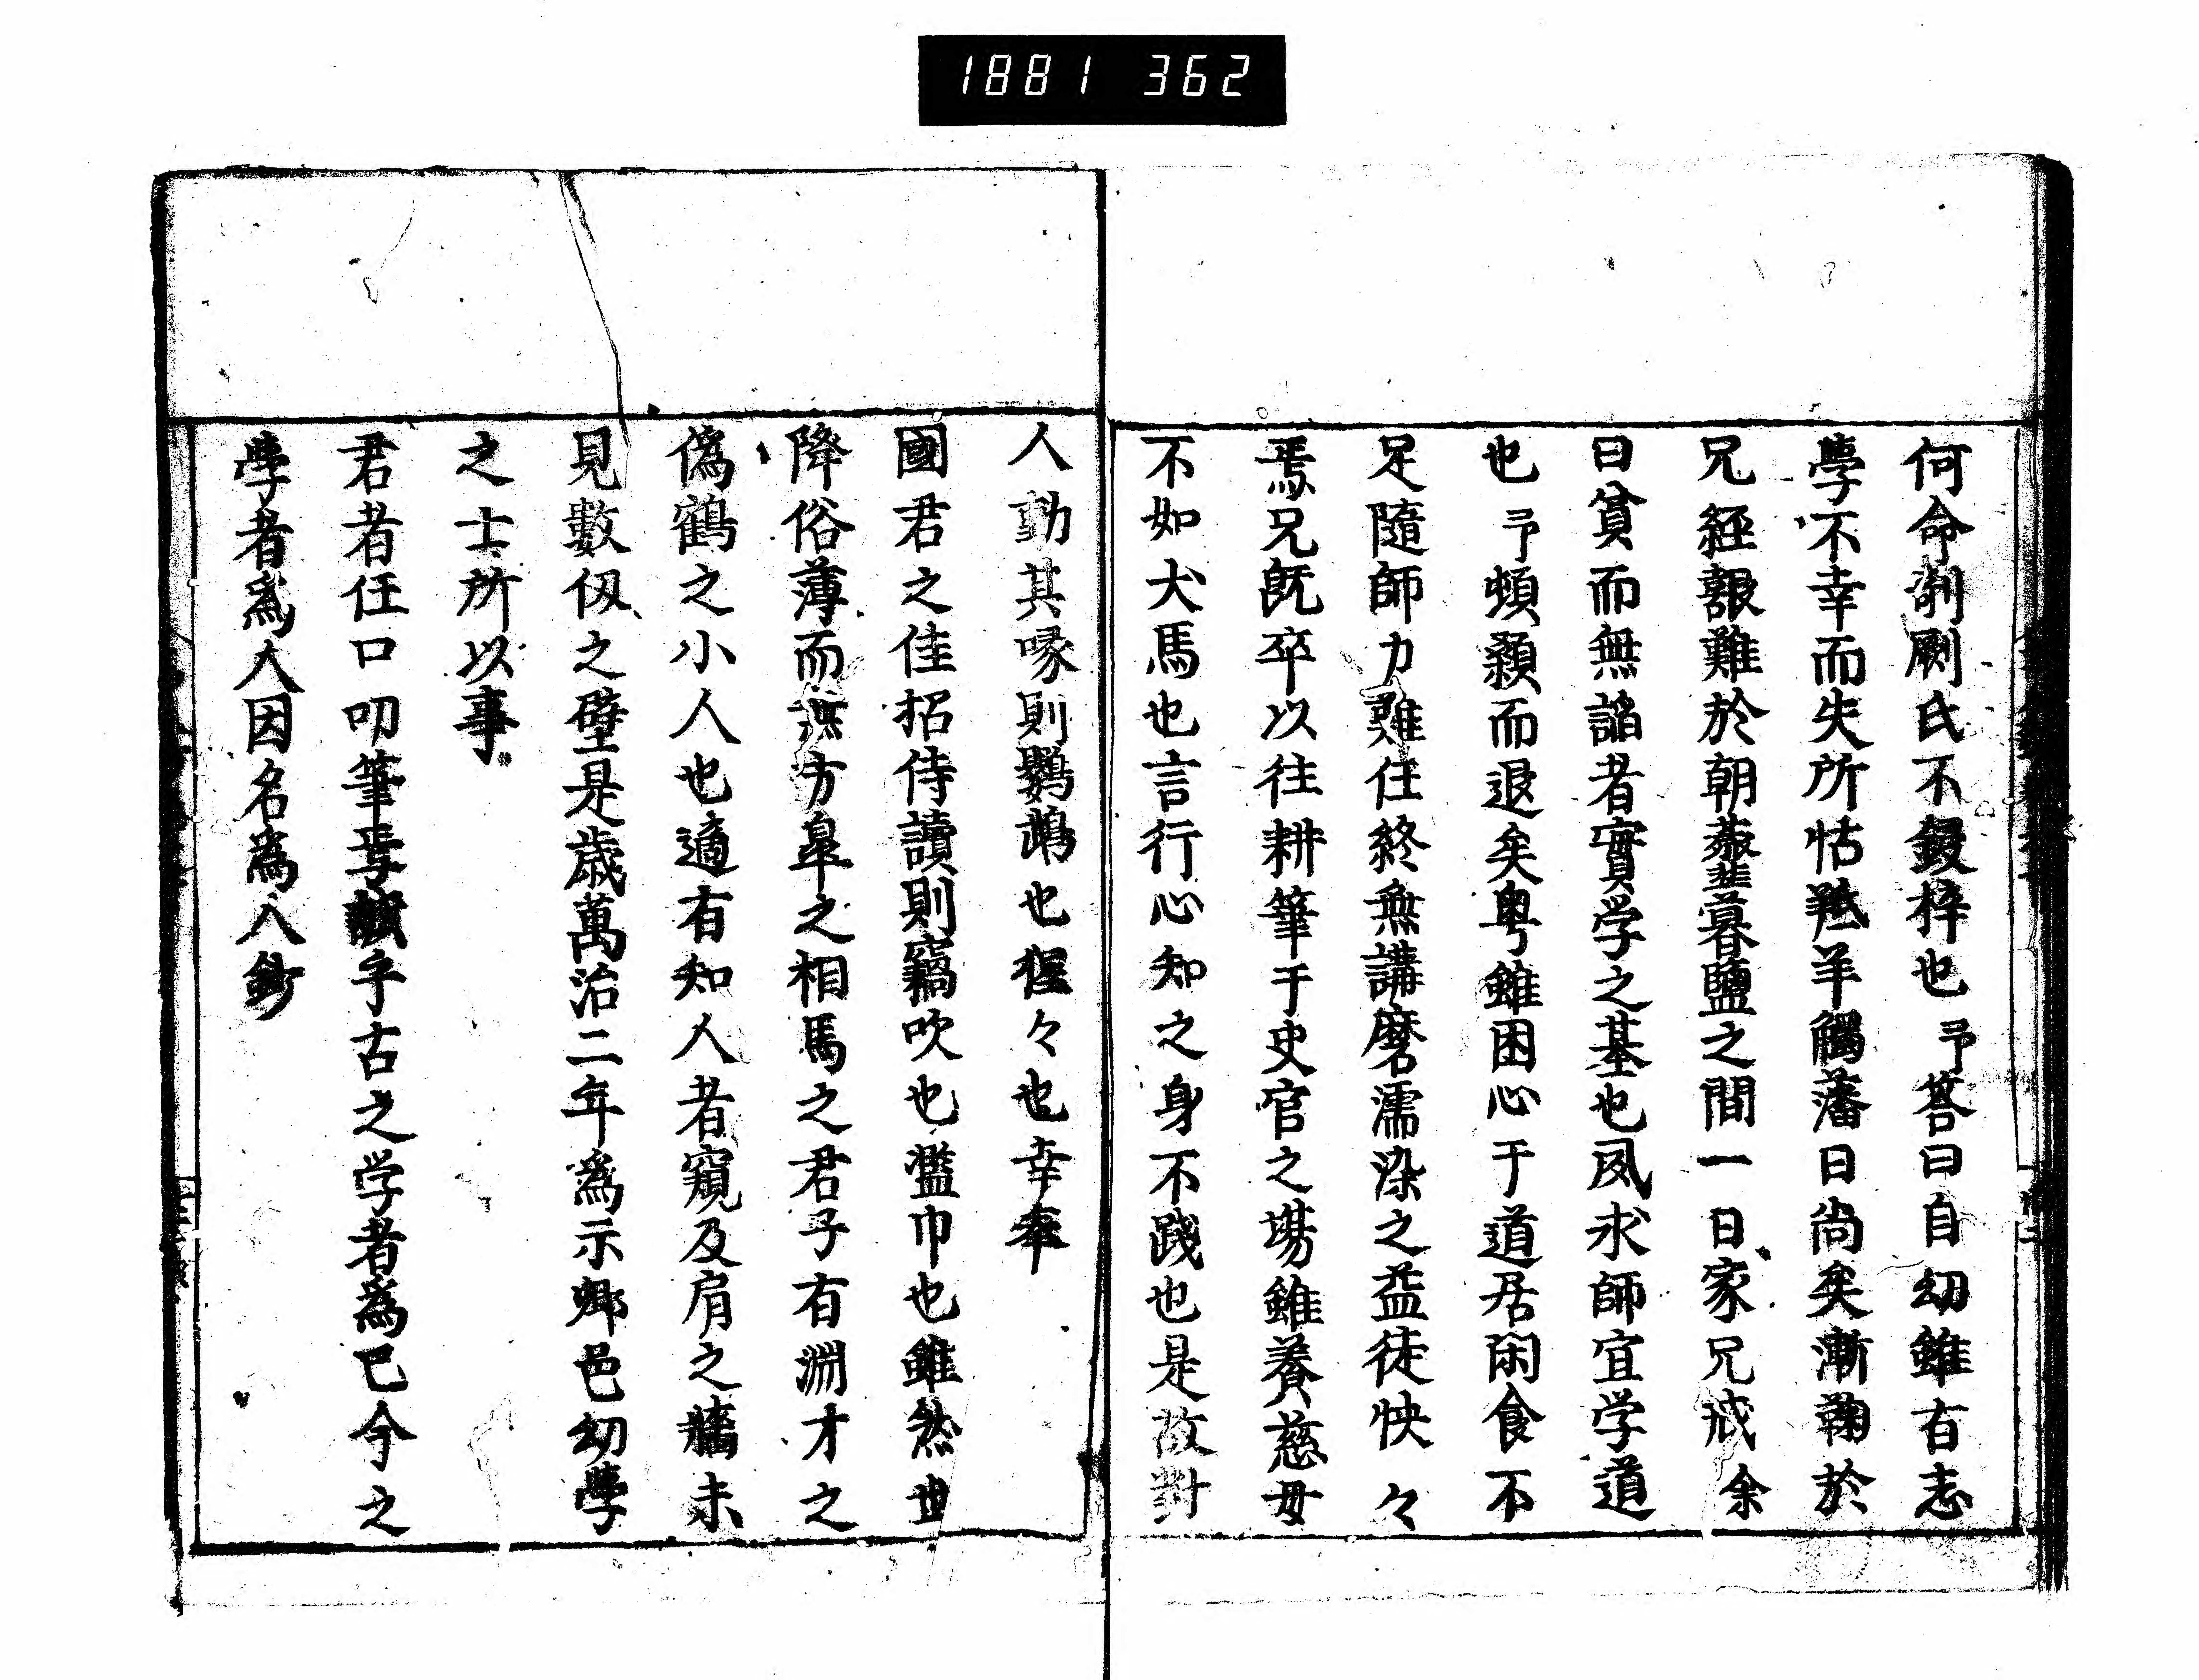 1881 362
何命剞劂氏不鋟梓也予荅曰自幼雖有志
學不幸而失所怙羝羊觸藩日尚矣漸鞠於
兄経艱難於朝虀暮鹽之間一日家兄戒余
曰貧而無諂者實学之基也夙求師宜学道
也予頓顙而退矣粤雖困心于道居閑食不
足隨師力難任終無講磨濡染之益徒怏々
焉兄既卒以往耕筆于史官之場雖養慈母
不如犬馬也言行心知之身不踐也是故對
人動其喙則鸚鵡也猩々也幸奉
國君之佳招侍讀則竊吹也濫巾也雖然世
降俗薄而無方皐之相馬之君子有淵才之
偽鶴之小人也適有知人者窺及肩之牆未
見數仭之壁是歳萬治二年為示郷邑幼學
之士所以事
君者任口叩筆焉乎古之学者為己今之
學者為人因名為人鈔